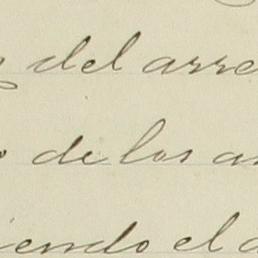 del arre
de los a
iendo el a